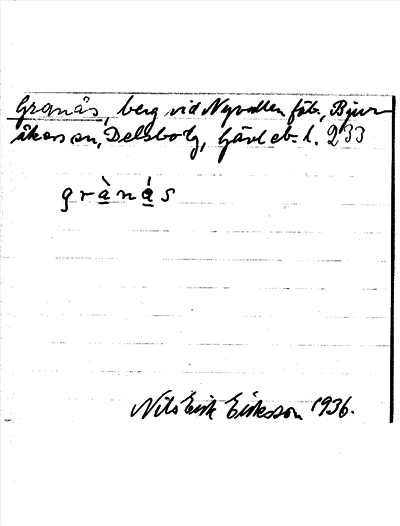 Granås, berg vid Nyvallen fäb., Bjur-
åkers sn, Delsbo tg, Gävleb. l. 233
gràn̲ás
Nils Erik Eriksson 1936.